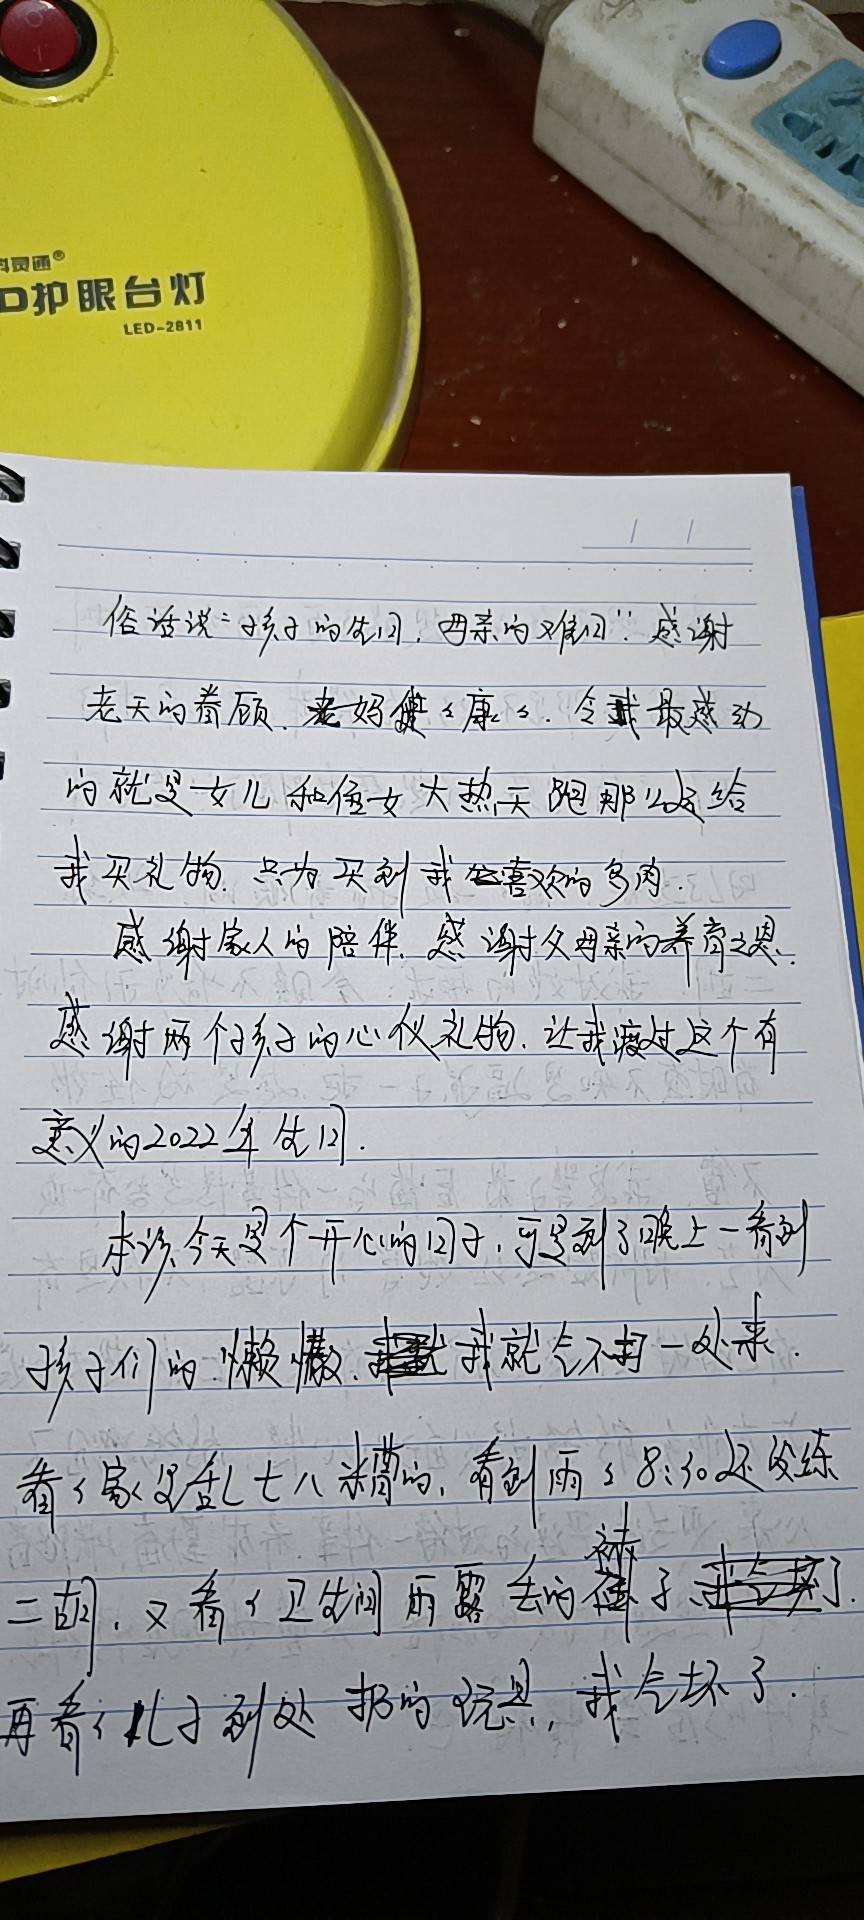 科灵通®
D护眼台灯
LED-2811
俗话说“孩子的生日，母亲的难日”。感谢
老天的眷顾，老妈健健康康。令我最感动
的就是女儿和侄女大热天跑那么远给
我买礼物，只为买到我喜欢的多肉。
感谢家人的陪伴，感谢父母亲的养育之恩，
感谢两个孩子的心仪礼物，让我渡过这个有
意义的2022年生日。
本该今天是个开心的日子，可是到了晚上一看到
孩子们的懒散，我就气不打一处来。
看看家里乱七八糟的，看到雨雨8:30还没练
二胡，又看看卫生间雨露丢的裤子，了。
再看看儿子到处扔的玩具，我气坏了。